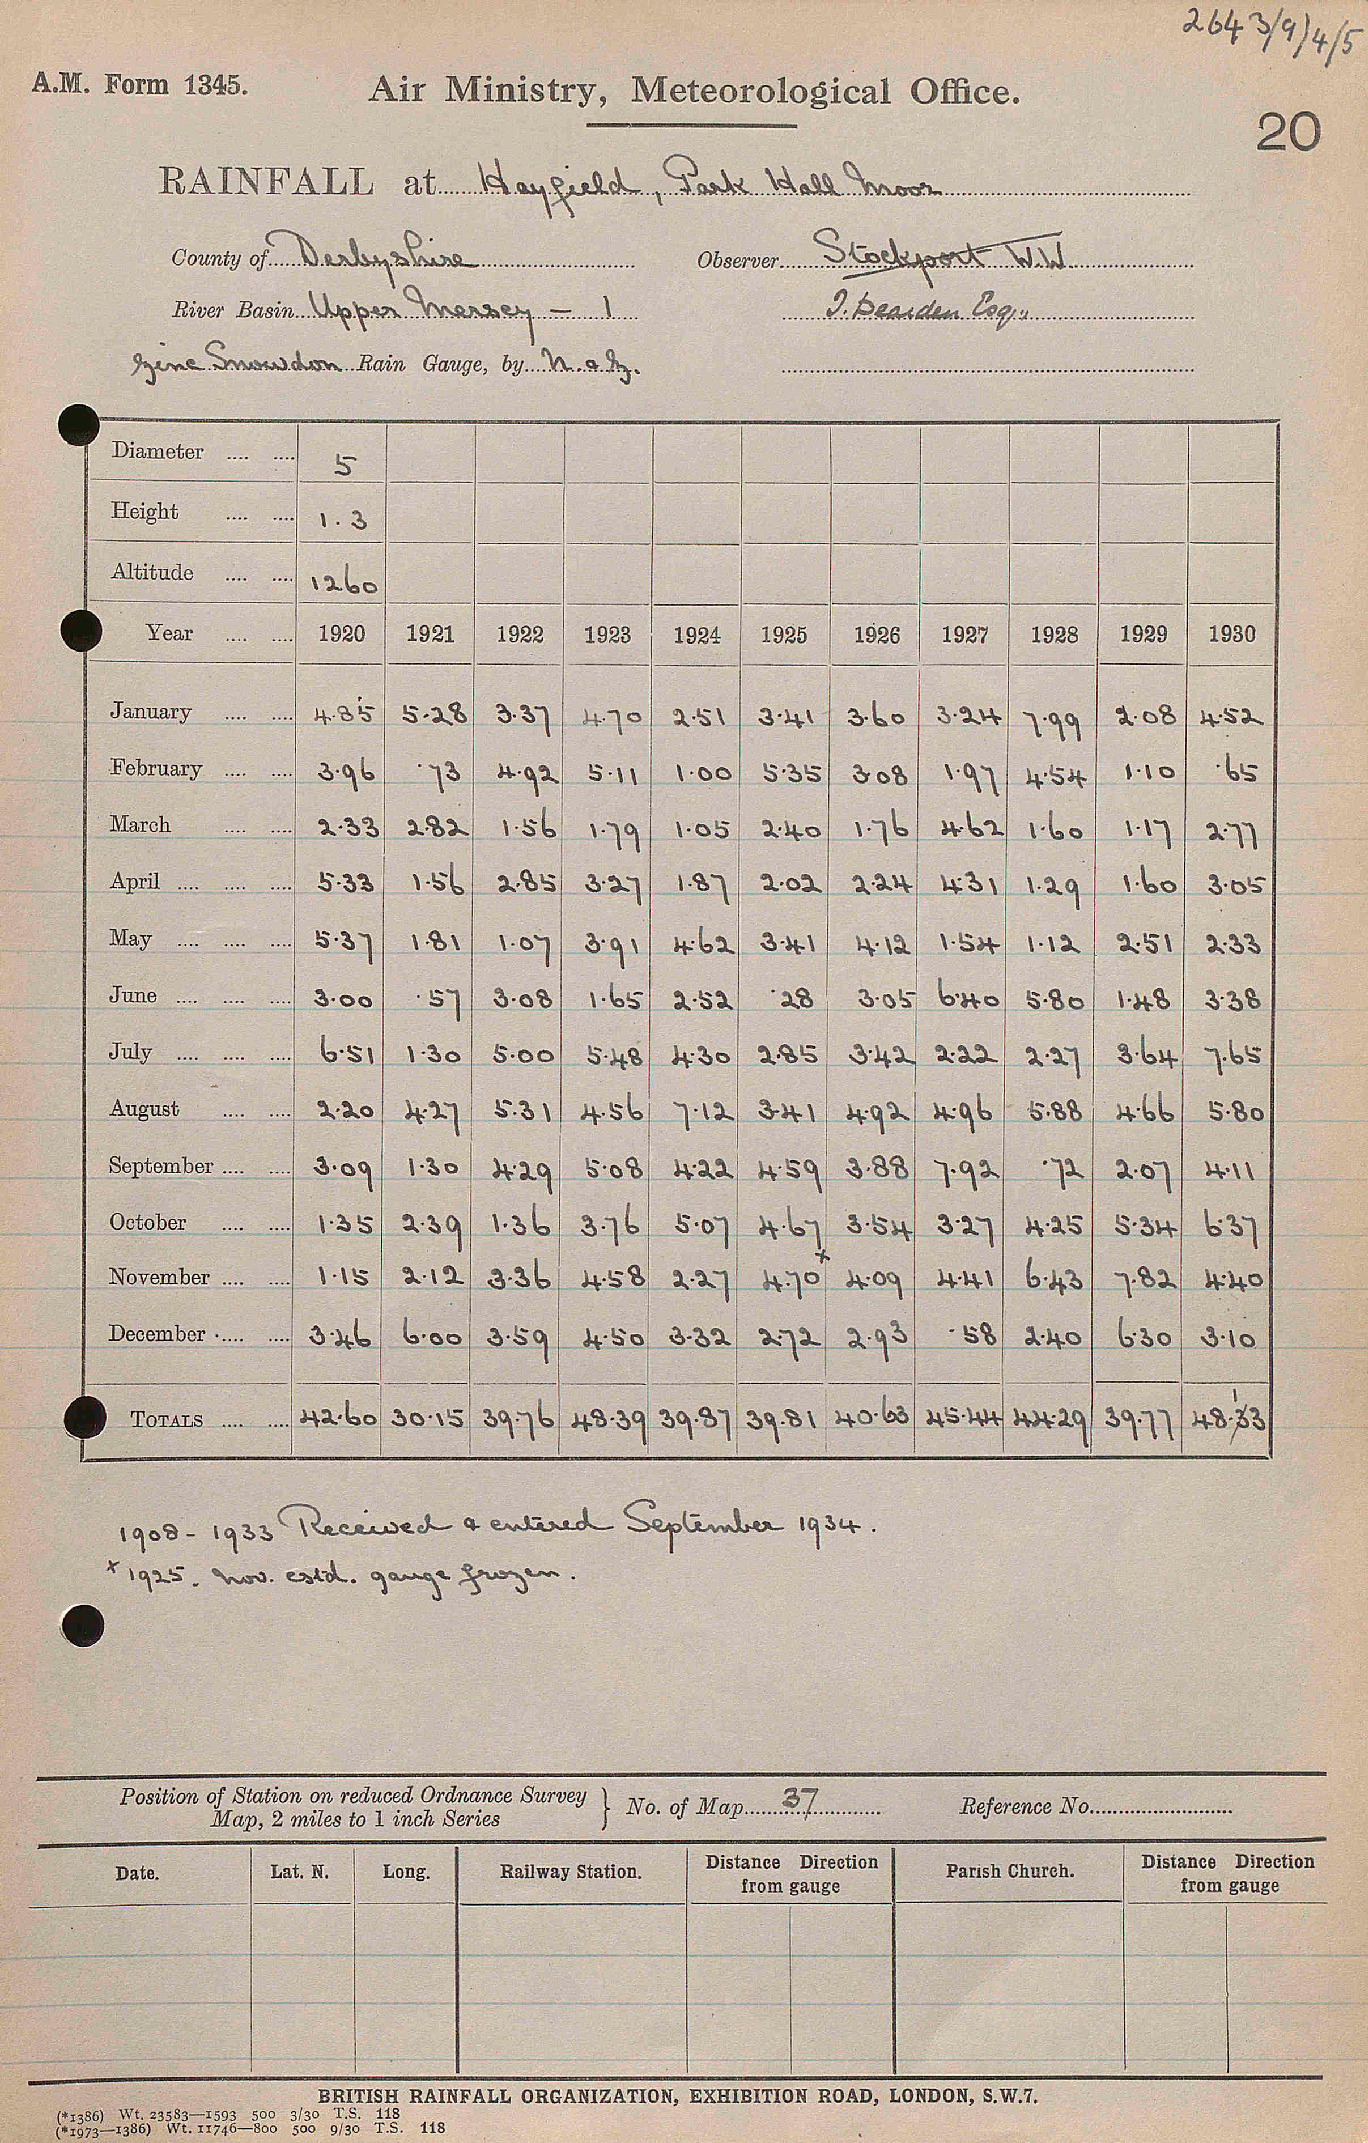 2643/9/4/5
A.M. Form 1345.
Air Ministry, Meteorological Office.
20
RAINFALL at Hayfield, Park Hall Moor
County of Derbyshire Observer Stockport W.W.
River Basin Upper Mersey - 1 J. Dearden Esq.,
Zinc Snowdon Rain Gauge, by N. & Z.
Diameter .... .... 5
Height .... .... 1.3
Altitude .... .... 1260
Year .... .... 1920 1921 1922 1923 1924 1925 1926 1927 1928 1929 1930
January .... .... 4.85 5.28 3.37 4.70 2.51 3.41 3.60 3.24 7.99 2.08 4.52
February .... .... 3.96 .73 4.92 5.11 1.00 5.35 3.08 1.97 4.54 1.10 .65
March .... .... 2.33 2.82 1.56 1.79 1.05 2.40 1.76 4.62 1.60 1.17 2.77
April .... .... .... 5.33 1.56 2.85 3.27 1.87 2.02 2.24 4.31 1.29 1.60 3.05
May .... .... .... 5.37 1.81 1.07 3.91 4.62 3.41 4.12 1.54 1.12 2.51 2.33
June .... .... .... 3.00 .57 3.08 1.65 2.52 .28 3.05 6.40 5.80 1.48 3.38
July .... .... .... 6.51 1.30 5.00 5.48 4.30 2.85 3.42 2.22 2.27 3.64 7.65
August .... .... 2.20 4.27 5.31 4.56 7.12 3.41 4.92 4.96 5.88 4.66 5.80
September .... .... 3.09 1.30 4.29 5.08 4.22 4.59 3.88 7.92 .72 2.07 4.11
October .... .... 1.35 2.39 1.36 3.76 5.07 4.67 3.54 3.27 4.25 5.34 6.37
November .... .... 1.15 2.12 3.36 4.58 2.27 4.70x 4.09 4.41 6.43 7.82 4.40
December .... .... 3.46 6.00 3.59 4.50 3.32 2.72 2.93 .58 2.40 6.30 3.10
TOTALS .... .... 42.60 30.15 39.76 48.39 39.87 39.81 40.63 45.44 44.29 39.77 48.13
1908 - 1933 Received & entered September 1934.
x 1925. Nov. estd. gauge frozen.
Position of Station on reduced Ordnance Survey
Map, 2 miles to 1 inch Series } No. of Map 37 Reference No.
Date. Lat. N. Long. Railway Station. Distance Direction from gauge Parish Church. Distance Direction from gauge
BRITISH RAINFALL ORGANIZATION, EXHIBITION ROAD, LONDON, S.W.7.
(*1386) Wt. 23583—1593 500 3/30 T.S. 118
(*1973—1386) Wt. 11746—800 500 9/30 T.S. 118